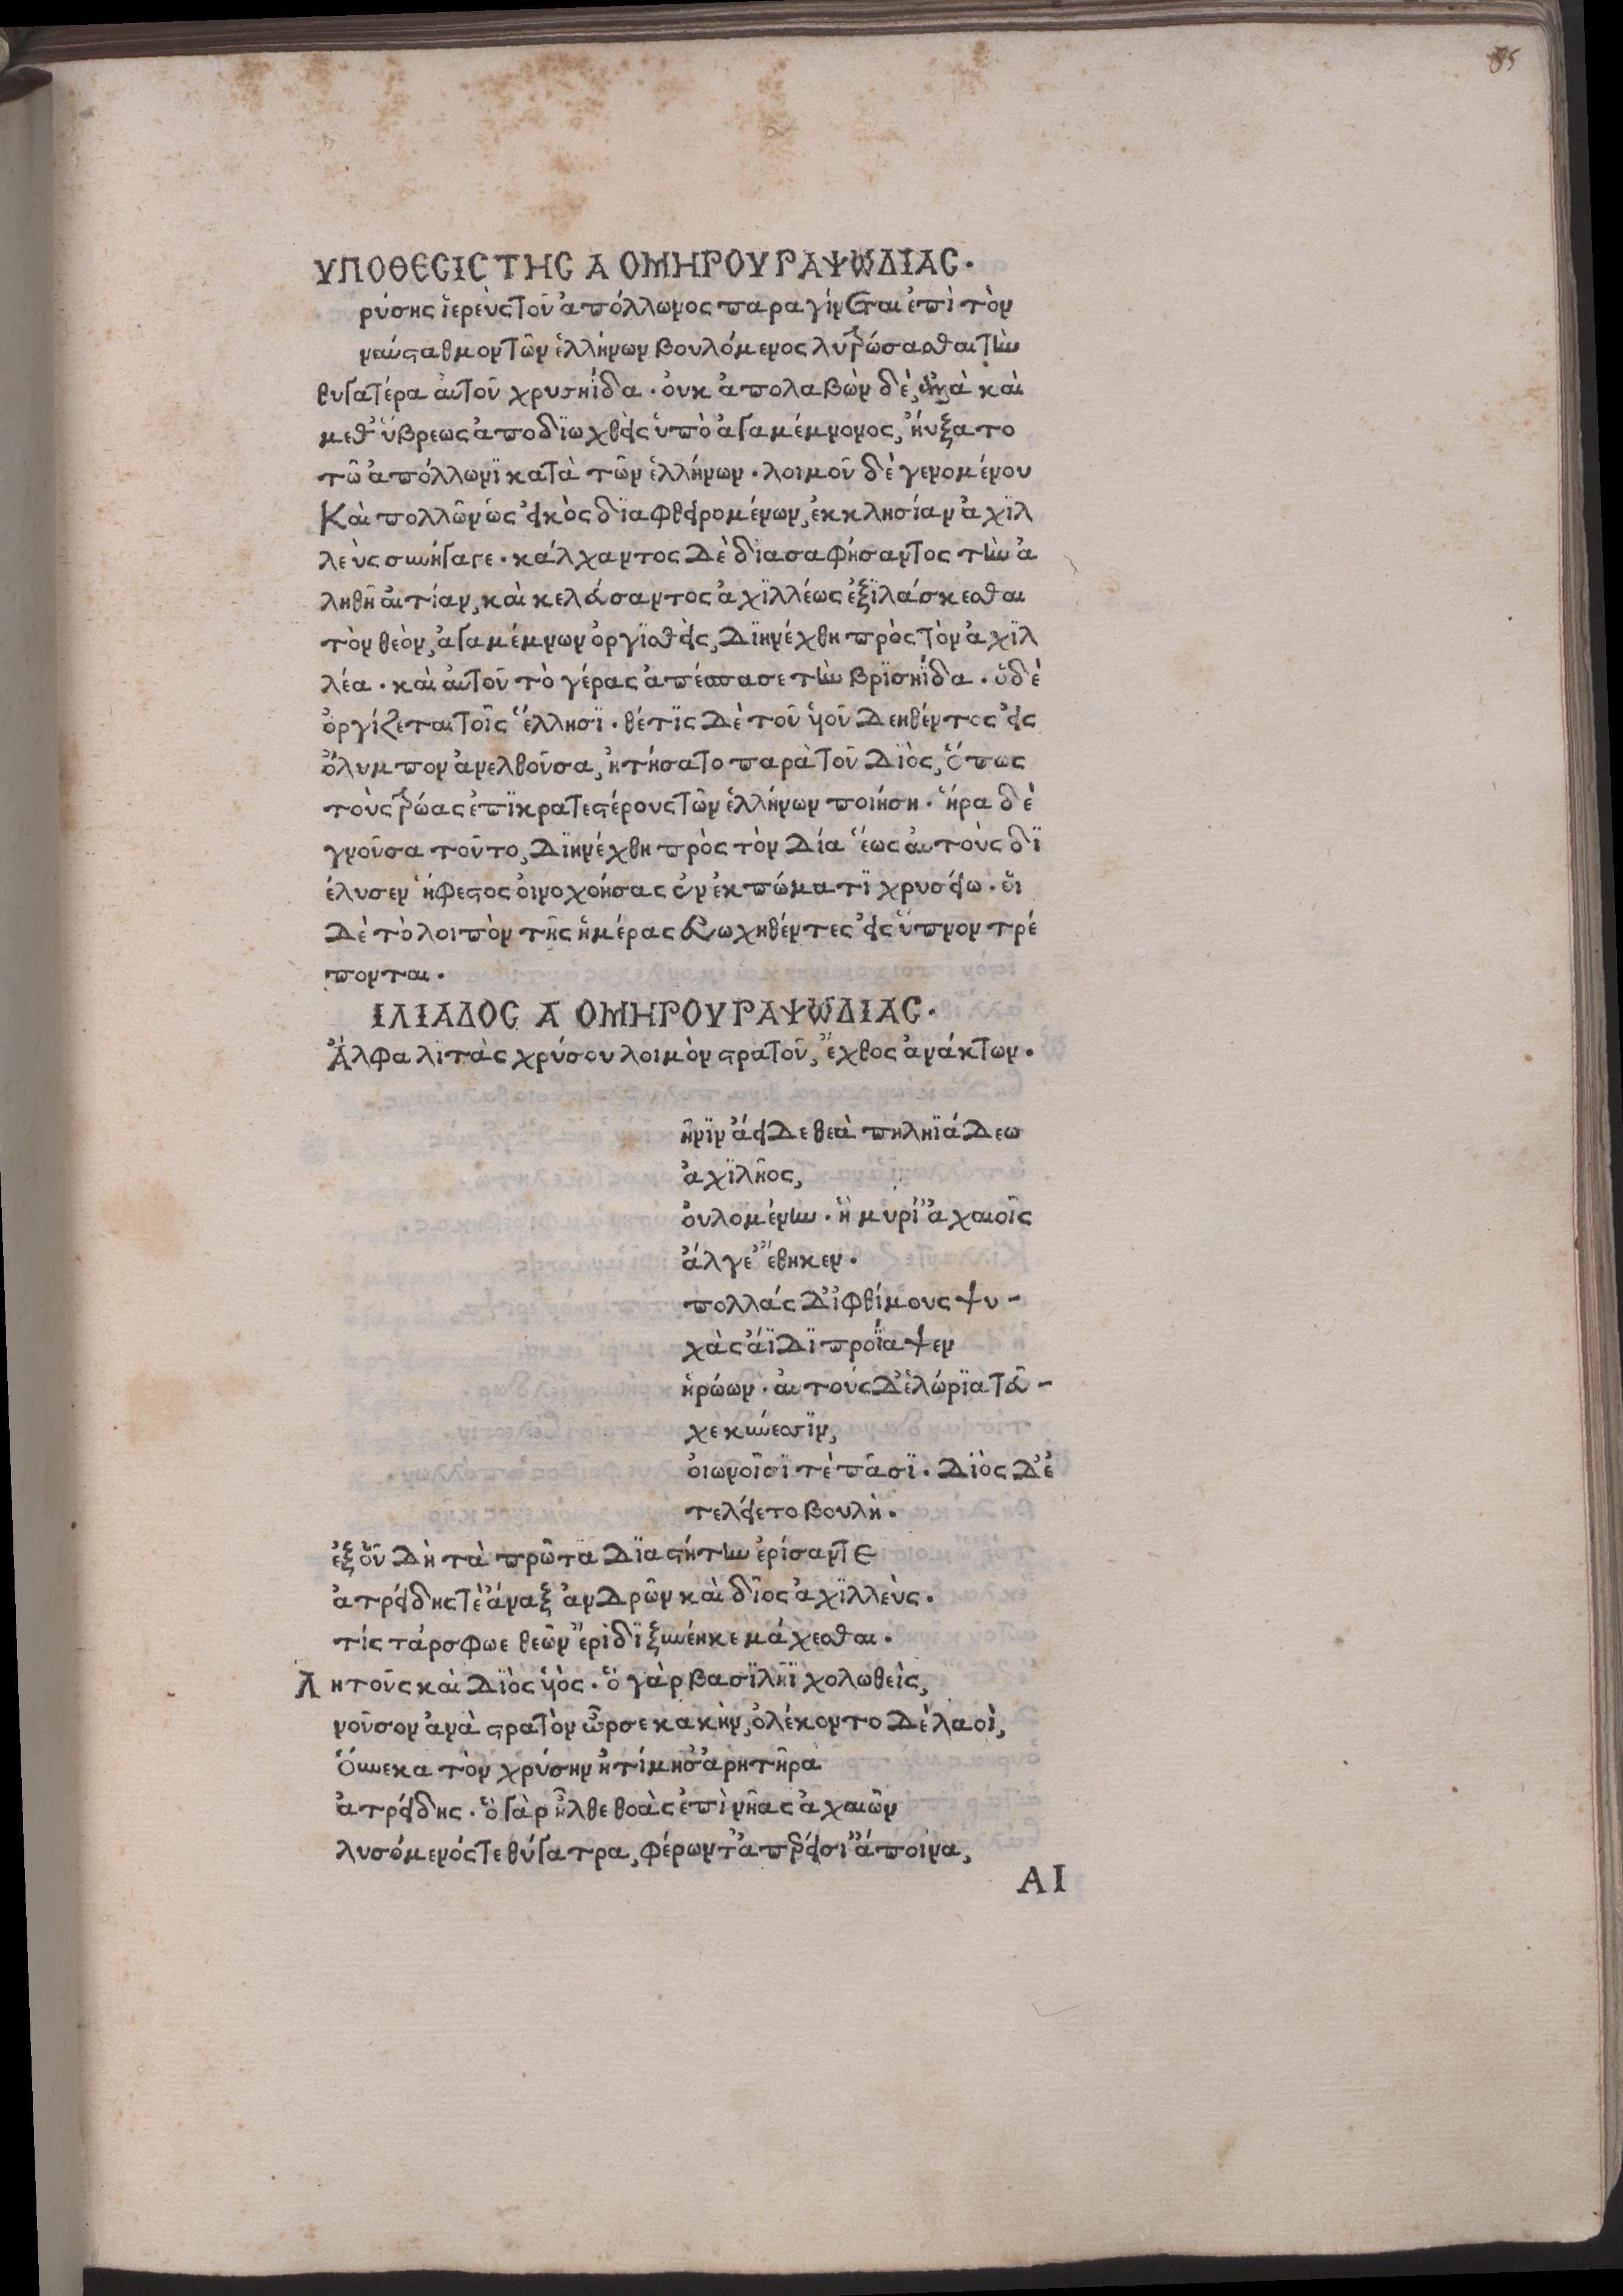 85
ΥΠΟΘΕϹΙϹ ΤΗϹ Α ΟΜΗΡΟΥ ΡΑΨΩΔΙΑϹ.
ρύσης ἱερεὺς τοῦ ἀπόλλωνος παραγίνεται ἐπὶ τὸν
ναύσταθμον τῶν ἑλλήνων βουλόμενος λυτρώσασθαι τὴν
θυγατέρα αὐτοῦ χρυσηΐδα. ὀυκ ἀπολαβὼν δὲ, ἀλλὰ καὶ
μεθ' ὕβρεως ἀποδϊωχθεὶς ὑπὸ ἀγαμέμνονος, ἠύξατο
τῶ ἀπόλλωνϊ κατὰ τῶν ἑλλήνων. λοιμοῦ δὲ γενομένου
Καὶ πολλῶν ὡς εἰκὸς δϊαφθειρομένων, ἐκκλησίαν ἀχϊλ
λεὺς συνήγαγε. κάλχαντος δὲ δϊασαφήσαντος τὴν ἀ
ληθῆ αἰτίαν, καὶ κελεύσαντος ἀχϊλλέως ἐξϊλάσκεσθαι
τὸν θεὸν, ἀγαμέμνων ὀργϊσθεὶς, δϊηνέχθη πρὸς τὸν ἀχϊλ
λέα. καὶ αὐτοῦ τὸ γέρας ἀπέσπασε τὴν βρϊσηΐδα. ὁ δὲ
ὀργίζεται τοῖς ἕλλησϊ. θέτϊς δὲ τοῦ υἱοῦ δεηθέντος εἰς
ὄλυμπον ἀνελθοῦσα, ἠτήσατο παρὰ τοῦ Δϊὸς, ὅπως
τοὺς τρώας ἐπϊκρατεστέρους τῶν ἑλλήνων ποιήση. ἥρα δὲ
γνοῦσα τοῦτο, δϊηνέχθη πρὸς τὸν Δία ἕως αὐτοὺς δϊ
έλυσεν ἥφεστος ὀινοχοήσας ἐν ἐκπώματϊ χρυσείω. ὁι
δὲ τὸ λοιπὸν τῆς ἡμέρας εὐωχηθέντες εἰς ὕπνον τρέ
πονται.
ΙΛΙΑΔΟϹ Α ΟΜΗΡΟΥ ΡΑΨΩΔΙΑϹ.
Ἄλφα λϊτὰς χρύσου λοιμὸν στρατοῦ, ἔχθος ἀνάκτων.
ῆνϊν ἄειδε θεὰ πηληϊάδεω
ἀχϊλῆος,
ὀυλομένην. ἣ μυρί' ἀχαιοῖς
ἄλγε' ἔθηκεν.
πολλάς δ' ἰφθίμους ψυ-
χὰς ἄϊδϊ προΐαψεν
ἡρώων. αὐτούς δ' ἑλώρϊα τεῦ-
χε κύνεσσϊν,
ὀιωνοῖσϊ τὲ πᾶσϊ. Δϊὸς δ' ἐ
τελείετο βουλὴ.
ἐξ ὃῦ δὴ τὰ πρῶτα δϊαστήτην ἐρίσαντε
ἀτρείδης τὲ ἄναξ ἀνδρῶν καὶ δῖος ἀχϊλλεὺς.
τίς τάρ σφωε θεῶν ἔριδϊ ξυνέηκε μάχεσθαι.
Λ ητοῦς καὶ Δϊὸς υἱὸς. ὃ γὰρ βασϊλῆϊ χολωθεὶς,
νοῦσον ἀνὰ στρατὸν ὦρσε κακὴν, ὀλέκοντο δὲ λαοὶ,
Ὅυνεκα τὸν χρύσην ἠτίμησ' ἀρητῆρα
ἀτρείδης. ὃ γὰρ ἦλθε θοὰς ἐπὶ νῆας ἀχαιῶν
λυσόμενός τε θύγατρα, φέρων τ' ἀπερείσι' ἄποινα,
ΑΙ